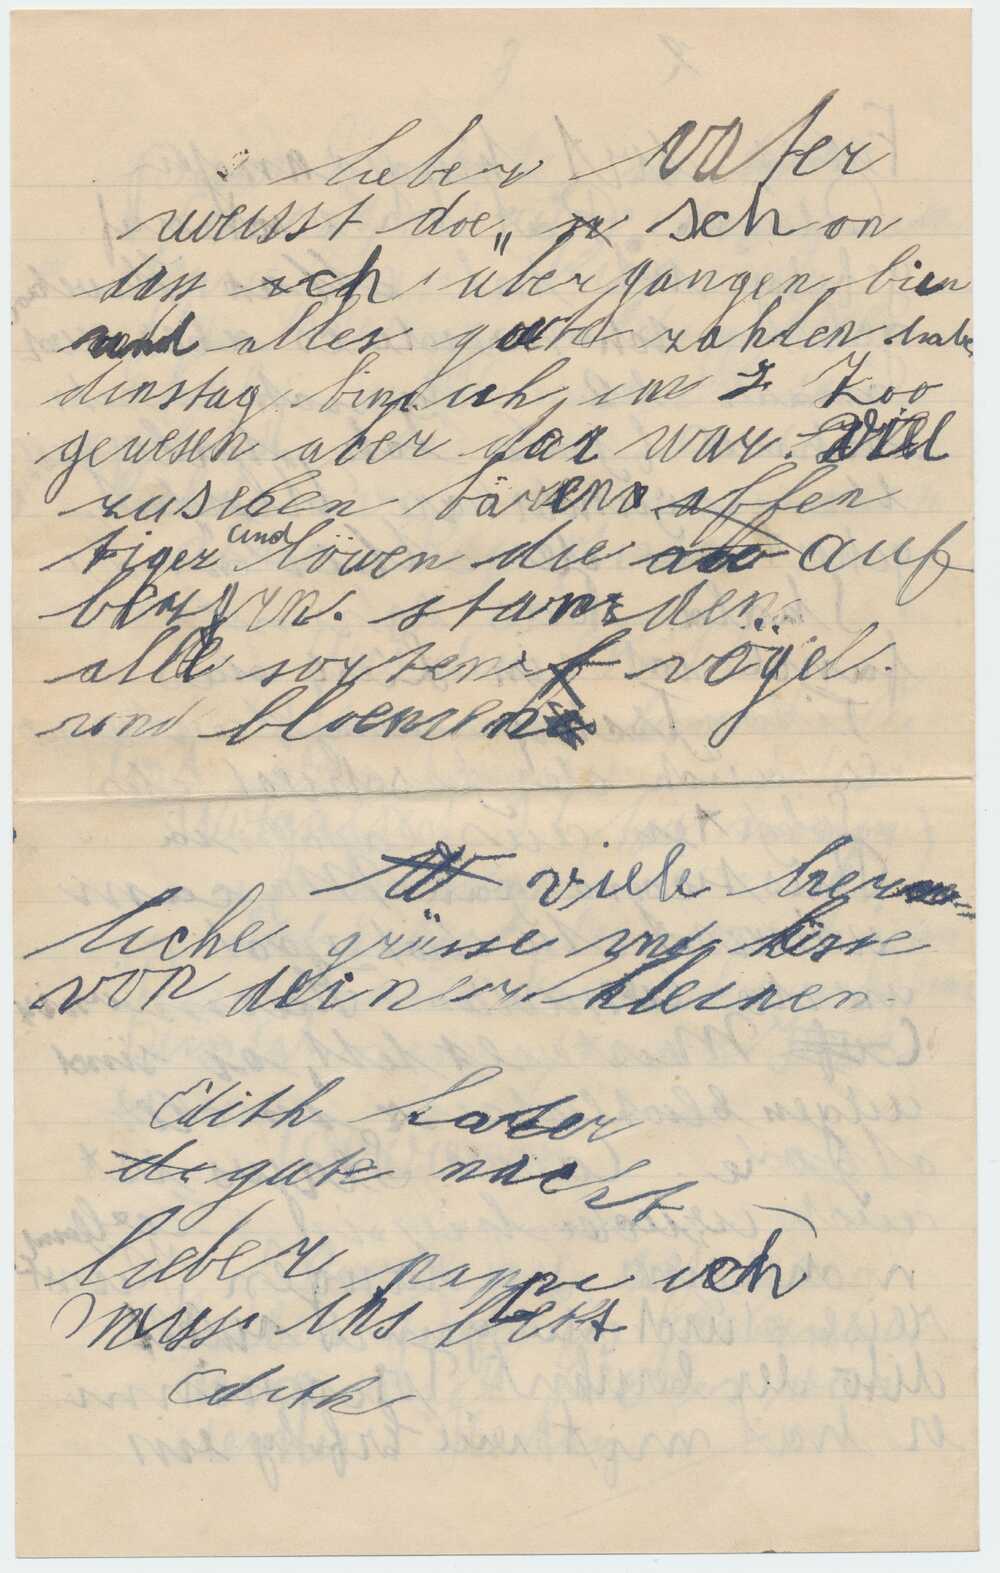 lieber vater
weisst doe„ schon
das ich übergangen bien
und alles gute zahlen habe
dinstag bin ich im Zoo
gewesen aber dar war. viel
zusehen bären affen
tiger und löwen die auf
bergen. standen.
alle sorten vögel.
und bloemen
viele herz=
liche grüsse und küsse
von deiner kleinen
Edith
gute nacht
lieber pappe ich
muss ins bett
Edith